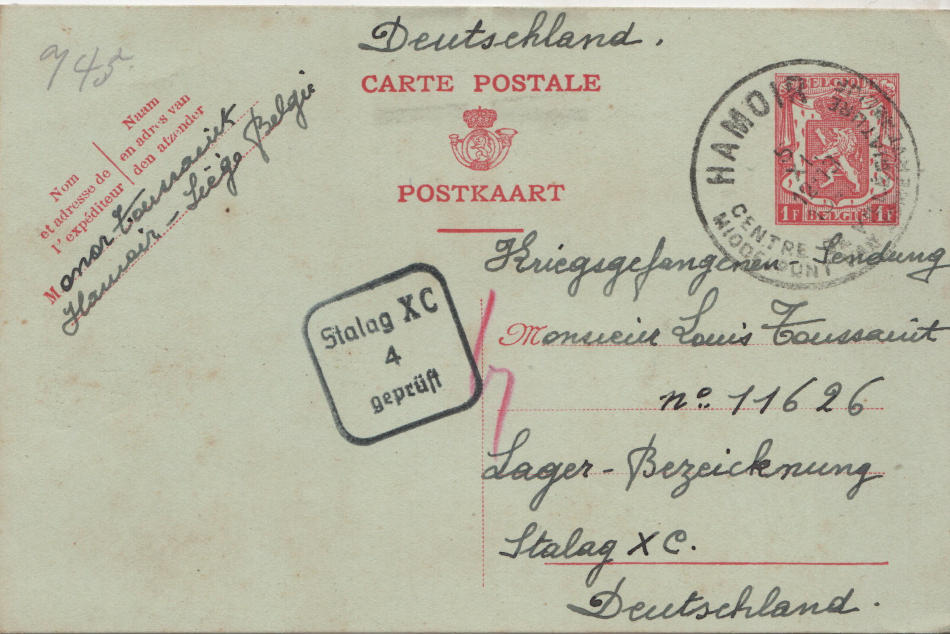 Deutschland.
945
CARTE POSTALE
POSTKAART
Nom
et adresse de
l'expéditeur
Naam
en adres van
den afzender
Toussaint
Hamoir - Liège Belgie
BELGIQUE
1F BELGIË 1F
HAMOIR
CENTRE
MIDDELPUNT VAN
Stalag XC
4
geprüft
Kriegsgefangenen-Sendung
Monsieur Louis Toussaint
n° 11626
Lager-Bezeicknung
Stalag XC.
Deutschland.